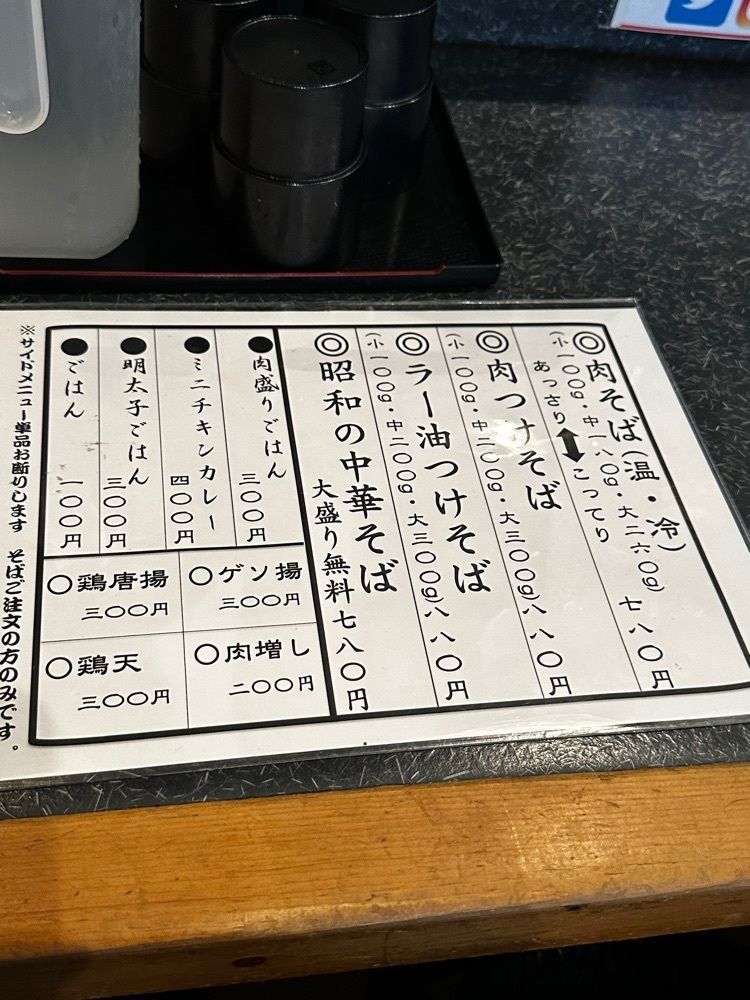 ◎肉そば(温・冷)
(小一〇〇g・中一八〇g・大二六〇g) 七八〇円
あっさり⬌こってり
◎肉つけそば
(小一〇〇g・中二〇〇g・大三〇〇g)八八〇円
◎ラー油つけそば
(小一〇〇g・中二〇〇g・大三〇〇g)八八〇円
◎昭和の中華そば
大盛り無料七八〇円
●肉盛りごはん
三〇〇円
●ミニチキンカレー
四〇〇円
●明太子ごはん
三〇〇円
●ごはん
一〇〇円
〇ゲソ揚
三〇〇円
〇鶏唐揚
三〇〇円
〇肉増し
二〇〇円
〇鶏天
三〇〇円
※サイドメニュー単品お断りします そばご注文の方のみです。